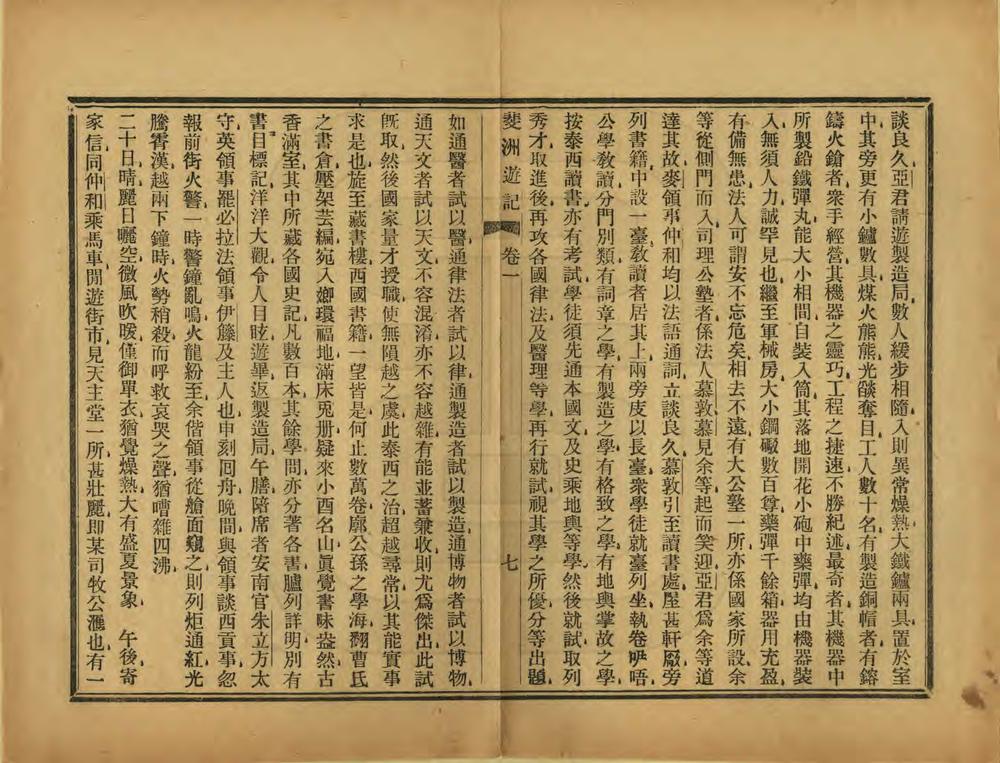 談良久亞君請遊製造局數人緩步相隨入則異常燥熱大鐵鑪兩具置於室
中其旁更有小鑪數具煤火熊熊光燄奪目工人數十名有製造銅帽者有鎔
鑄火鎗者衆手經營其機器之靈巧工程之捷速不勝紀述最奇者其機器中
所製鉛鐵彈丸能大小相間自裝入筒其落地開花小砲中藥彈均由機器裝
入無須人力誠罕見也繼至軍械房大小鋼礮數百尊藥彈千餘箱器用充盈
有備無患法人可謂安不忘危矣相去不遠有大公塾一所亦係國家所設余
等從側門而入司理公塾者係法人慕敦慕見余等起而笑迎亞君爲余等道
達其故麥領事仲和均以法語通詞立談良久慕敦引至讀書處屋甚軒厰旁
列書籍中設一臺敎讀者居其上兩旁皮以長臺衆學徒就臺列坐執卷吚唔
公學敎讀分門別類有詞章之學有製造之學有格致之學有地輿掌故之學
按泰西讀書亦有考試學徒須先通本國文及史乘地輿等學然後就試取列
秀才取進後再攻各國律法及醫理等學再行就試視其學之所優分等出題
斐洲遊記 卷一 七
如通醫者試以醫通律法者試以律通製造者試以製造通博物者試以博物
通天文者試以天文不容混淆亦不容越雜有能並蓄兼收則尤爲傑出此試
旣取然後國家量才授職使無隕越之虞此泰西之治超越尋常以其能實事
求是也旋至藏書樓西國書籍一望皆是何止數萬卷廓公孫之學海翻曹氏
之書倉壓架芸編宛入嫏環福地滿床兎册疑來小酉名山眞覺書味盎然古
香滿室其中所藏各國史記凡數百本其餘學問亦分著各書臚列詳明別有
書目標記洋洋大觀令人目眩遊畢返製造局午膳陪席者安南官朱立方太
守英領事羅必拉法領事伊籐及主人也申刻囘舟晚間與領事談西貢事忽
報前街火警一時警鐘亂鳴火龍紛至余偕領事從艙面窺之則列炬通紅光
騰霄漢越兩下鐘時火勢稍殺而呼救哀哭之聲猶嘈雜四沸
二十日晴麗日曬空微風吹暖僅御單衣猶覺燥熱大有盛夏景象 午後寄
家信同仲和乘馬車閒遊街市見天主堂一所甚壯麗即某司牧公遯也有一